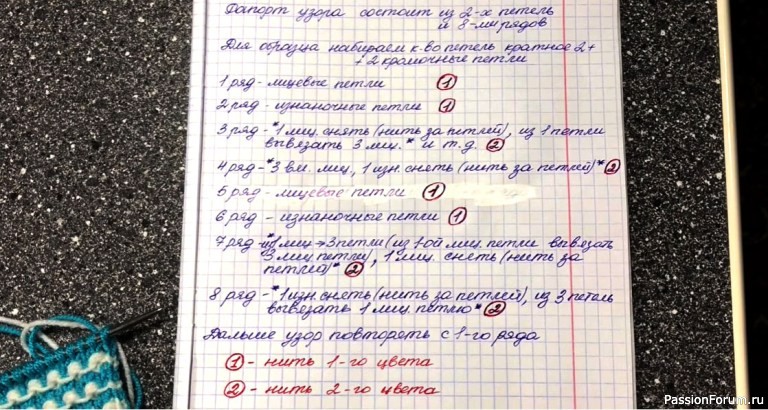 Раппорт узора состоит из 2-х петель
и 8-ми рядов
Для образца набираем к-во петель кратное 2+
+2 кромочные петли
1 ряд - лицевые петли ①
2 ряд - изнаночные петли ①
3 ряд - *1 лиц. снять (нить за петлей), из 1 петли
вывязать 3 лиц.* и т.д. ②
4 ряд - *3 вм. лиц, 1 изн. снять (нить за петлей)* ②
5 ряд - лицевые петли ①
6 ряд - изнаночные петли ①
7 ряд - *из 1 лиц → 3 петли (из 1-ой лиц. петли вывязать
3 лиц. петли), 1 лиц. снять (нить за
петлей)* ②
8 ряд - *1 изн. снять (нить за петлей), из 3 петель
вывязать 1 лиц. петлю* ②
Дальше узор повтореть с 1-го ряда
① - нить 1-го цвета
② - нить 2-го цвета
PassionForum.ru